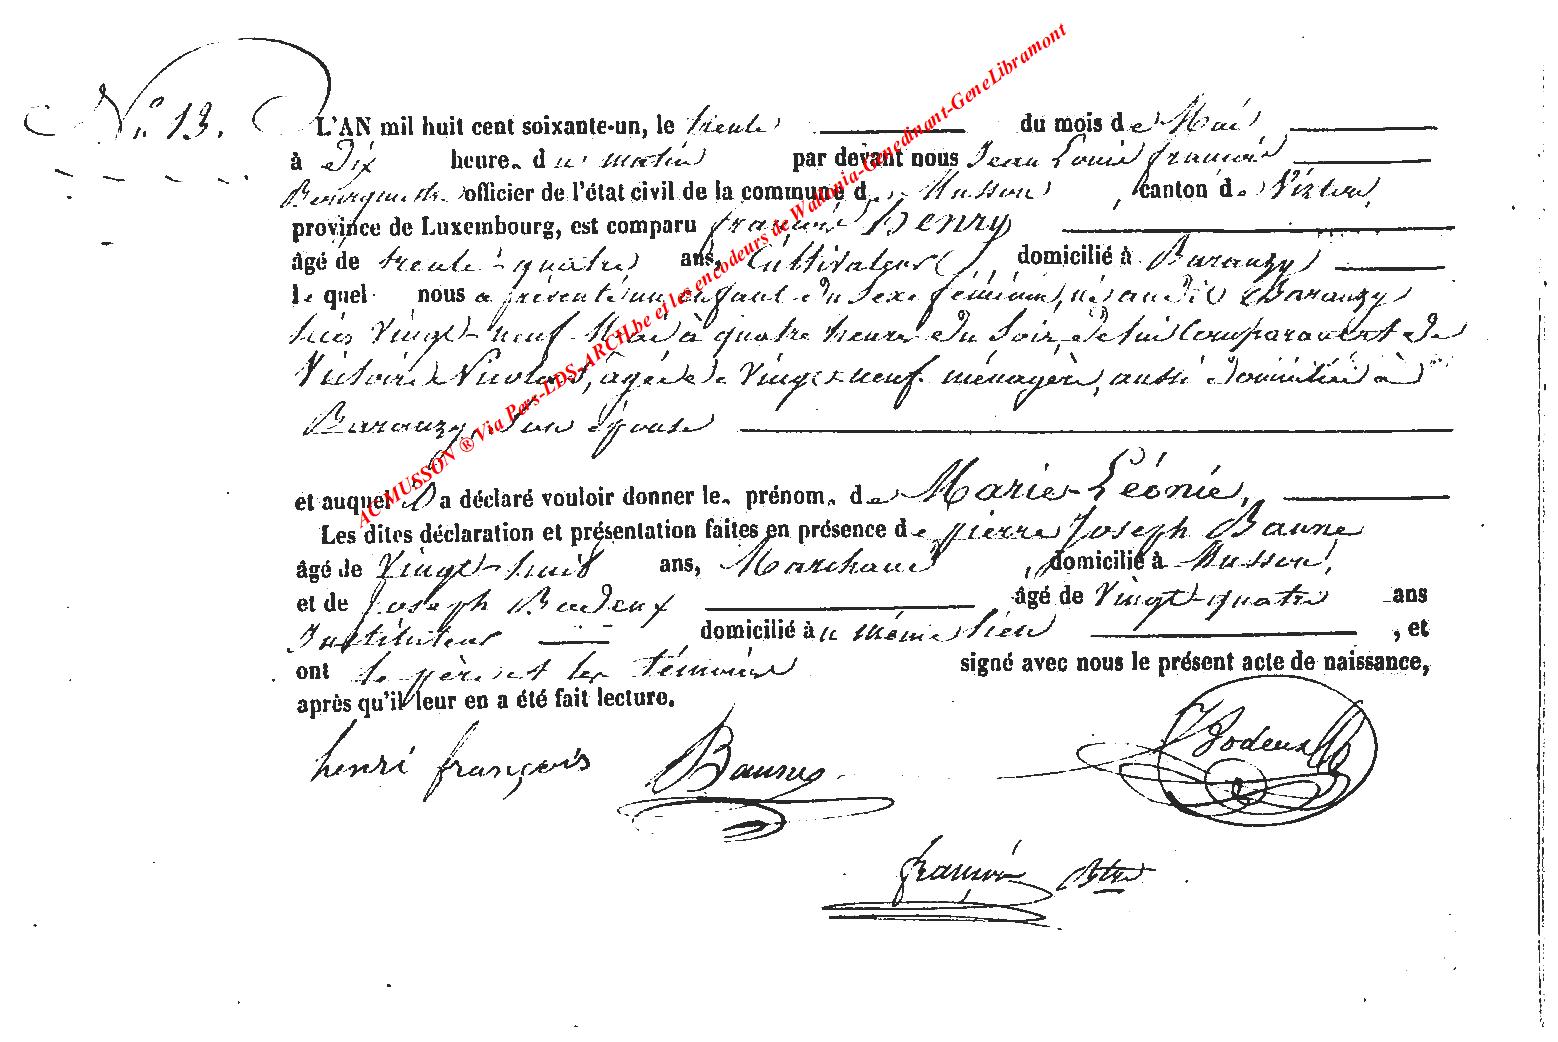 N.º 13. L'AN mil huit cent soixante-un, le trente du mois de Mai
à Dix heure. du matin par devant nous Jean Louis françois
Bourgmestre officier de l'état civil de la commune de Musson, canton de Virton,
province de Luxembourg, est comparu françois Henry
âgé de trente-quatre ans, Cultivateur domicilié à Baranzy
le quel nous a présenté un enfant du sexe féminin, né au dit Baranzy
hier Vingt-neuf Mai à quatre heures du soir, de lui Comparant et de
Victoire Nicolas, agée de Vingt-neuf ménagère, aussi domicilié à
Baranzy son épouse
et auquel il a déclaré vouloir donner le. prénom. de Marie-Léonie,
Les dites déclaration et présentation faites en présence de pierre Joseph Baune
âgé de Vingt-huit ans, Marchand, domicilié à Musson,
et de Joseph Bodeux âgé de Vingt-quatre ans
Instituteur domicilié au même lieu, et
ont le père et les témoins signé avec nous le présent acte de naissance,
après qu'il leur en a été fait lecture.
henri françois Baune JBodeux
françois Btre
AC MUSSON ® Via Pers-LDS-ARCH.be et les encodeurs de Wallonia-Genedinant-GeneLibramont